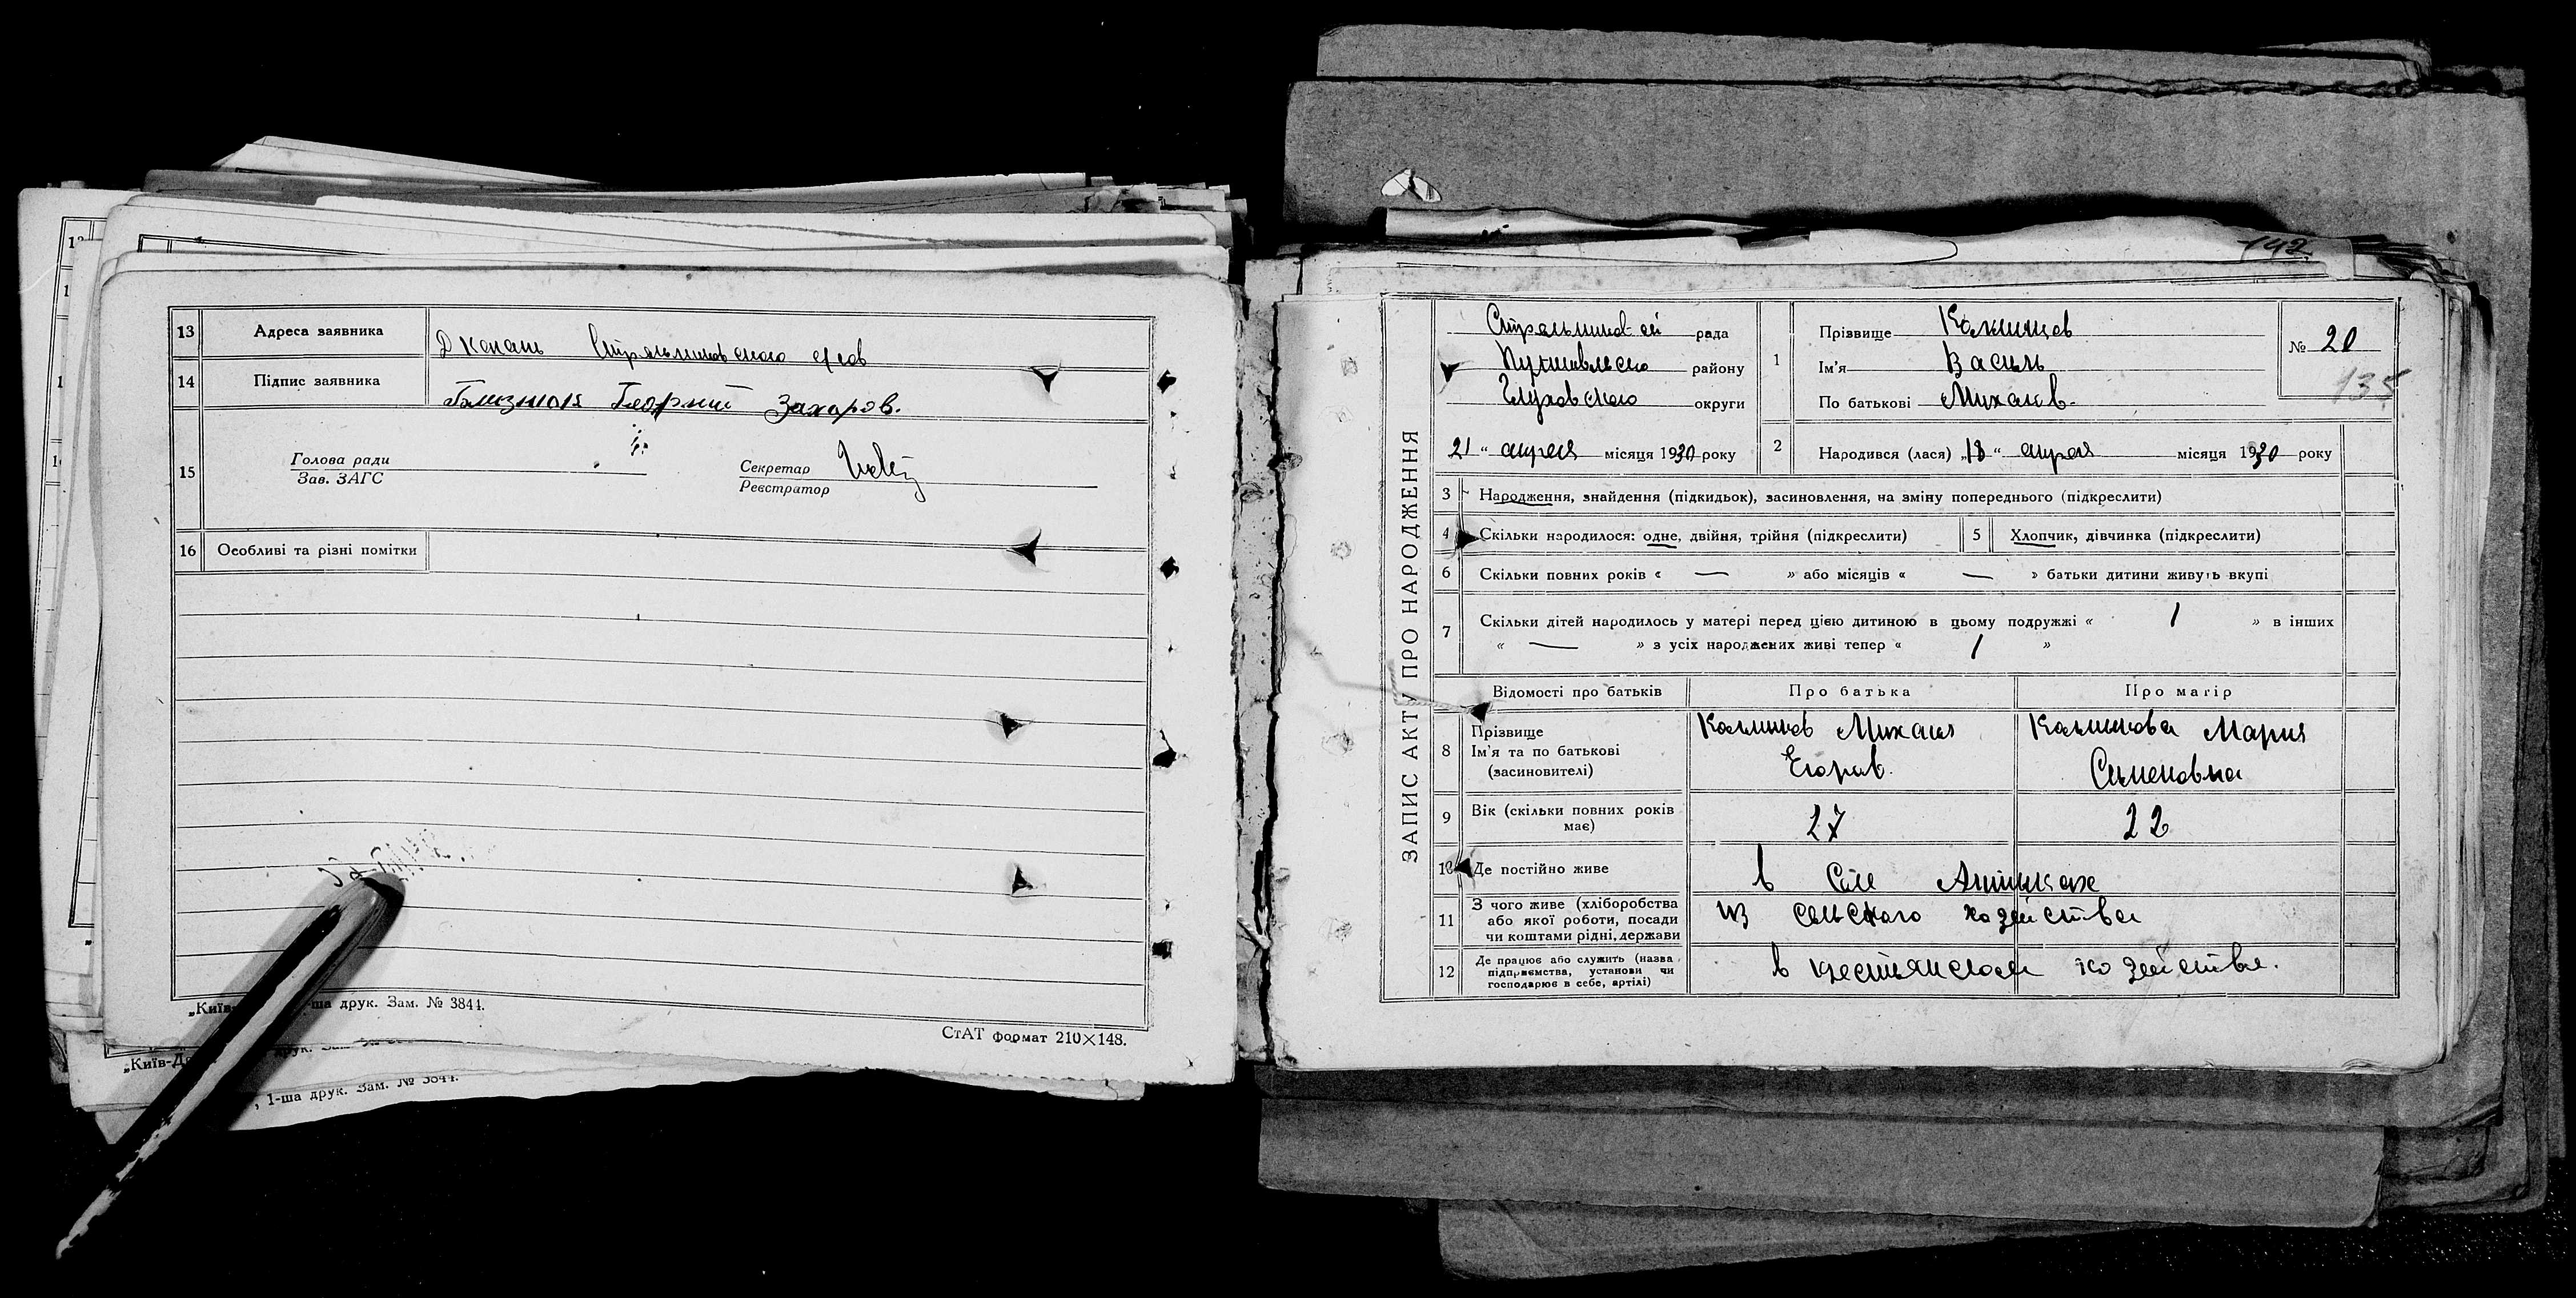 13 Адреса заявника
14 Підпис заявника
Георгий Захаров.
15 Голова ради
Зав. ЗАГС
Секретар
Реєстратор
16 Особливі та різні помітки
ша друк. Зам. № 3844.
СтАТ формат 210×148.
„Київ-Д
, 1-ша друк. Зам. № 3844.
142
ЗАПИС АКТУ ПРО НАРОДЖЕННЯ
рада
району
округи
21 " апреля місяця 1930 року
1 Прізвище
Ім'я Василь
По батькові Михаил
№ 20
135
2 Народився (лася) „18" апреля місяця 1930 року
3 Народження, знайдення (підкидьок), засиновлення, на зміну попереднього (підкреслити)
4 Скільки народилося: одне, двійня, трійня (підкреслити) 5 Хлопчик, дівчинка (підкреслити)
6 Скільки повних років « — » або місяців « — » батьки дитини живуть вкупі
7 Скільки дітей народилось у матері перед цією дитиною в цьому подружжі « 1 » в інших
« — » з усіх народжених живі тепер « 1 »
Відомості про батьків Про батька Про матір
8 Прізвище
Ім'я та по батькові
(засиновителі)
Калинов Михаил
Егоров.
Калинова Мария
Семеновна
9 Вік (скільки повних років
має)
27 22
10 Де постійно живе
в селе
11 З чого живе (хліборобства
або якої роботи, посади
чи коштами рідні, держави
из сельского хозяйства
12 Де працює або служить (назва
підприємства, установи чи
господарює в себе, артілі)
в крестьянском хозяйстве.